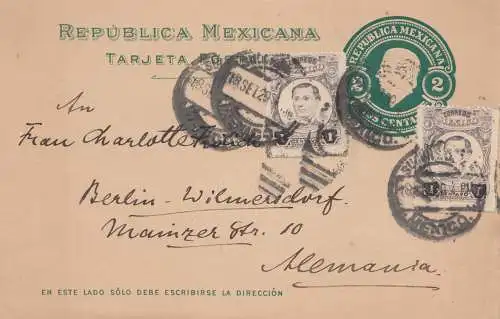 REPÚBLICA MEXICANA
TARJETA
REPUBLICA MEXICANA
2 2
CENTAVOS
18 SE 29
MEXICO.
CORREOS
MEXICO
1 1
MEXICO.
An
Frau Charlotte
Berlin-Wilmersdorf.
Mainzer Str. 10
Alemania.
EN ESTE LADO SÓLO DEBE ESCRIBIRSE LA DIRECCIÓN